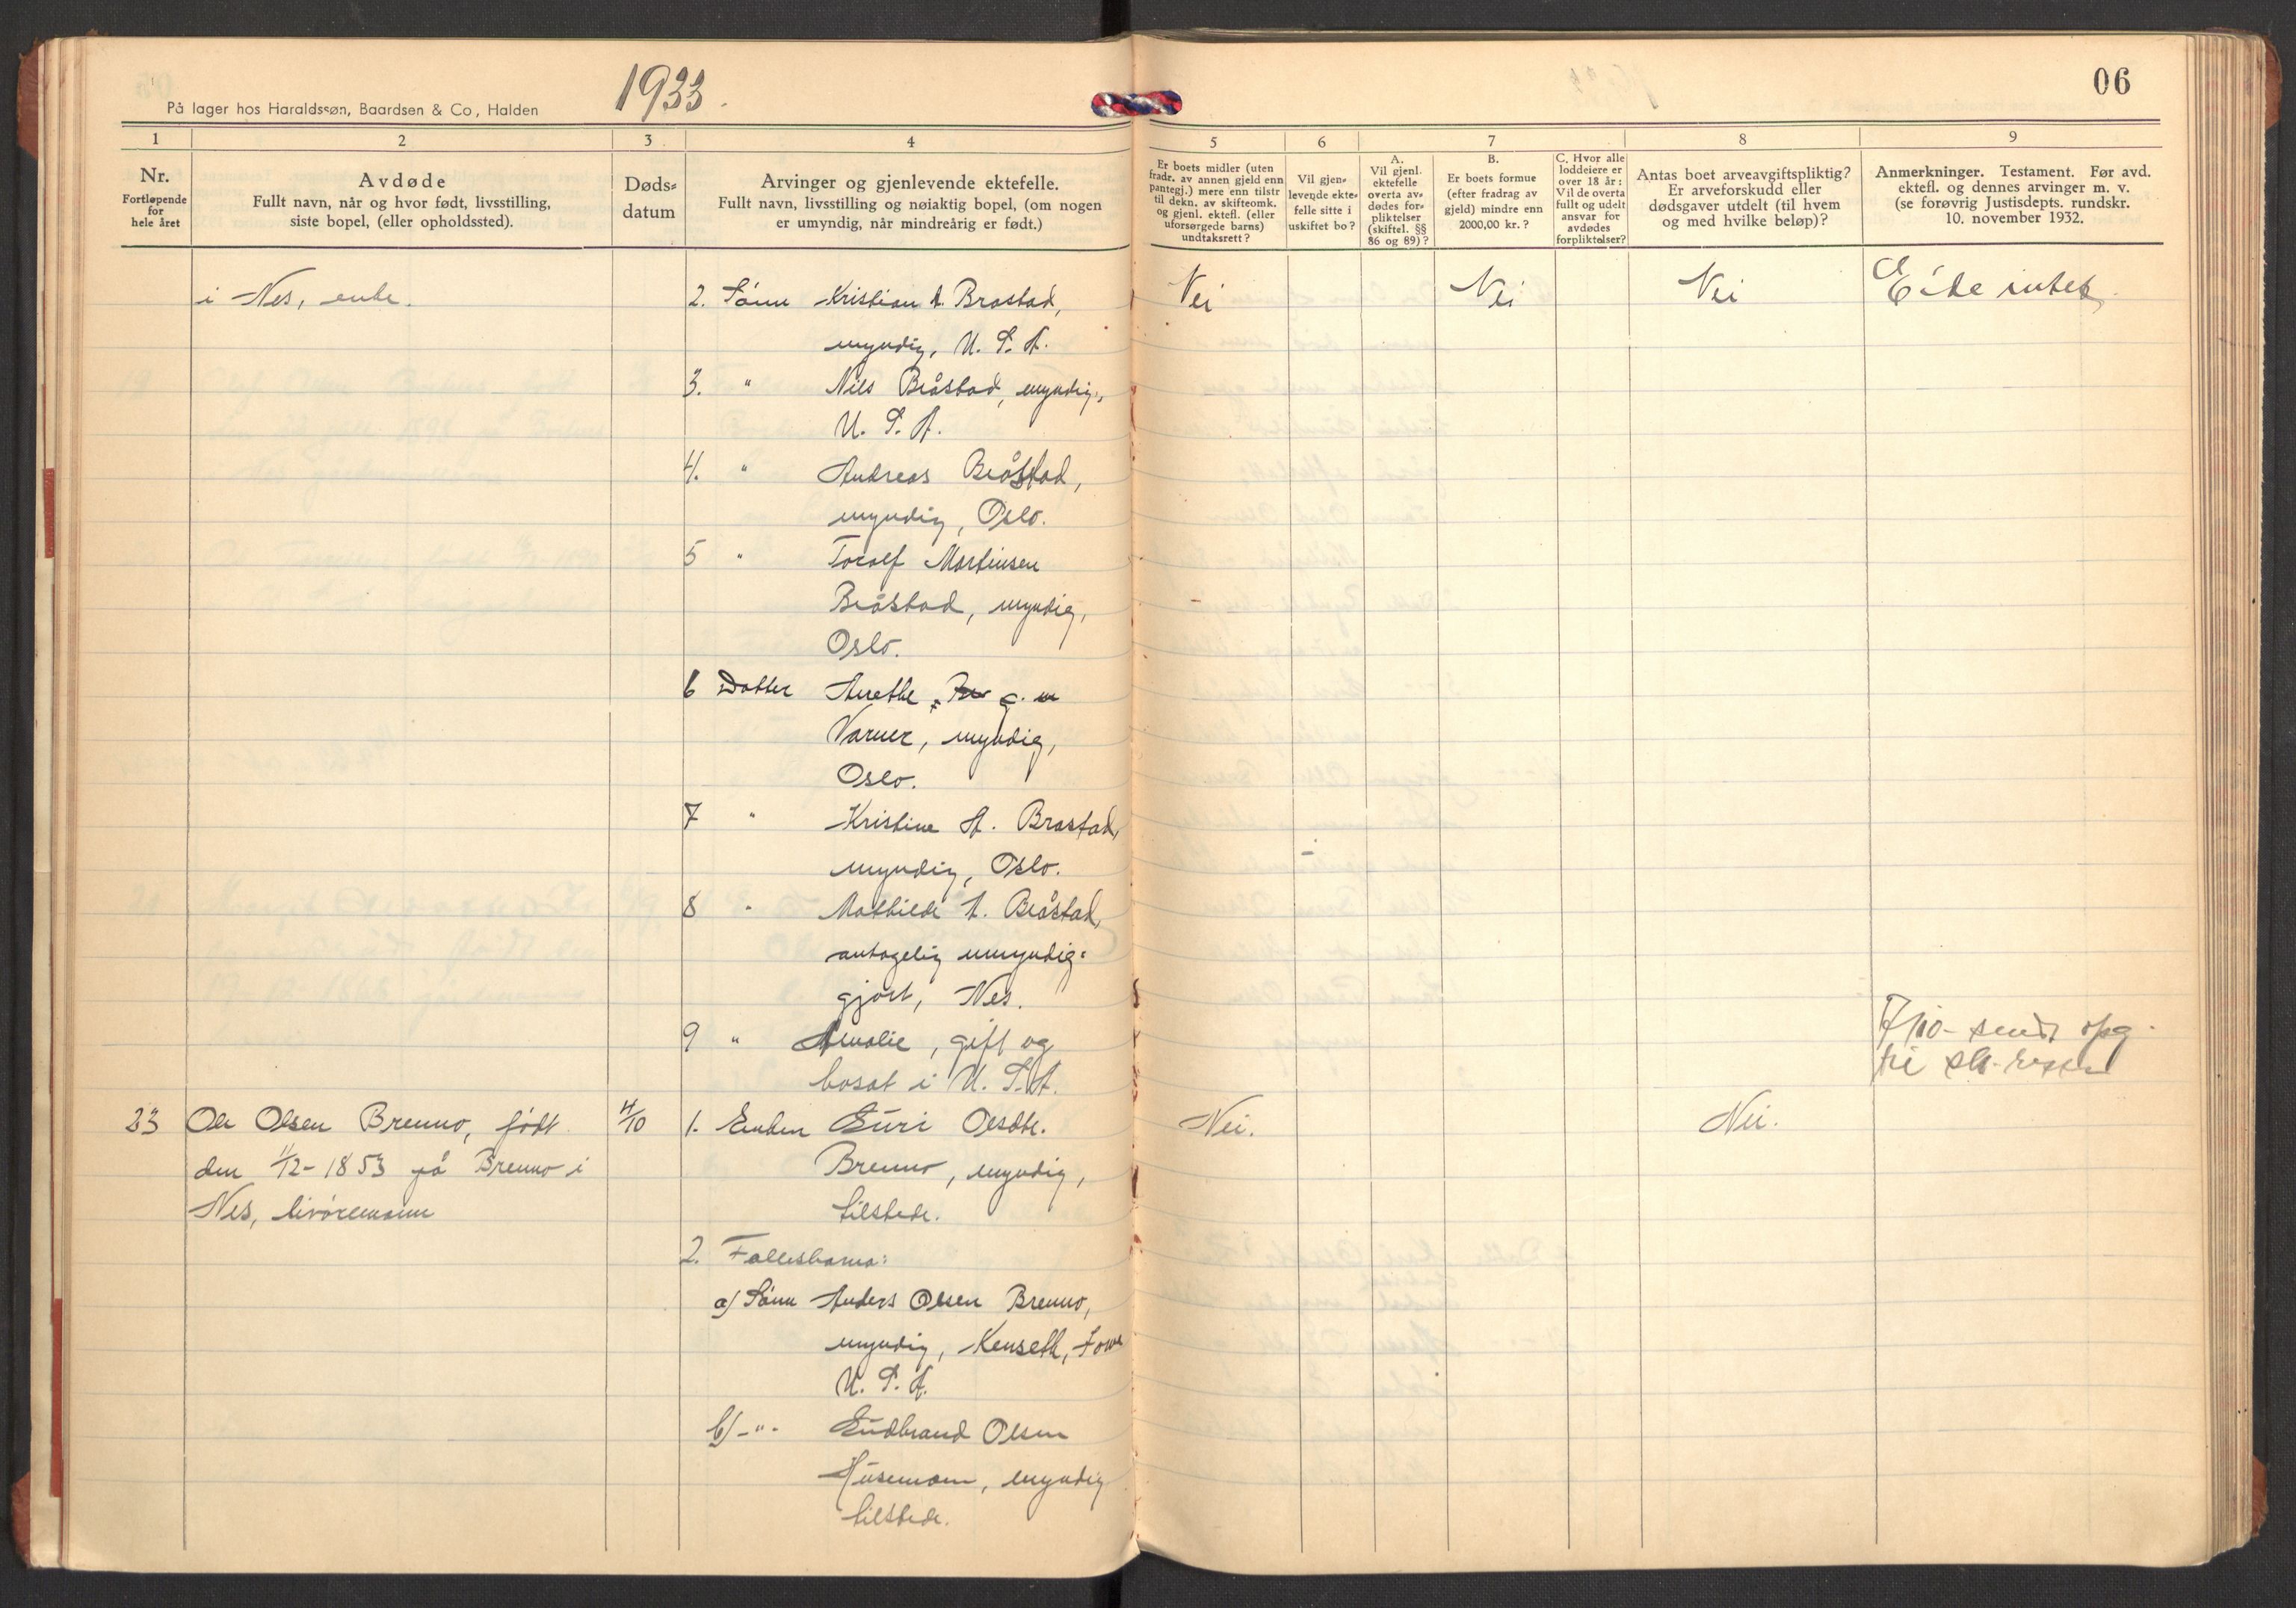 På lager hos Haraldssøn, Baardsen & Co, Halden
1933.
06
1
2
3
4
5
6
7
8
9
Nr.
Fortløpende
for
hele året
Avdøde
Fullt navn, når og hvor født, livsstilling,
siste bopel, (eller opholdssted).
Døds-
datum
Arvinger og gjenlevende ektefelle.
Fullt navn, livsstilling og nøiaktig bopel, (om nogen
er umyndig, når mindreårig er født.)
Er boets midler (uten
fradr. av annen gjeld enn
pantegj.) mere enn tilstr
til dekn. av skifteomk.
og gjenl. ektefl. (eller
uforsørgede barns)
undtaksrett?
Vil gjen-
levende ekte-
felle sitte i
uskiftet bo?
A.
Vil gjenl.
ektefelle
overta av-
dødes for-
pliktelser
(skiftel. §§
86 og 89)?
B.
Er boets formue
(efter fradrag av
gjeld) mindre enn
2000,00 kr.?
C. Hvor alle
loddeiere er
over 18 år:
Vil de overta
fullt og udelt
ansvar for
avdødes
forpliktelser?
Antas boet arveavgiftspliktig?
Er arveforskudd eller
dødsgaver utdelt (til hvem
og med hvilke beløp)?
Anmerkninger. Testament. Før avd.
ektefl. og dennes arvinger m. v.
(se forøvrig Justisdepts. rundskr.
10. november 1932.
i Nes, enke.
2. Sønn Kristian A. Brostad,
myndig, U. S. A.
3. " Nils Bråstad, myndig,
U. S. A.
4. " Andreas Bråstad,
myndig, Oslo.
5 " Torolf Martinsen
Bråstad, myndig,
Oslo.
6 Datter Anethe, g. m
Varner, myndig,
Oslo.
7 " Kristine A. Brastad,
myndig, Oslo.
8 " Mathilde A. Bråstad,
antagelig umyndig-
gjort, Nes.
9 " Amalie, gift og
bosat i U. S. A.
Nei
Nei
Nei
Eide intet
7/10- sendt opg.
til
23 Ole Olsen Brenno, født
den 4/12-1853 på Brenno i
Nes, livøremann
4/10
1. Enken Guri Olsdtr.
Brenno, myndig,
tilstede.
2. Fellesbarna:
a) Sønn Anders Olsen Brenno,
myndig, Kenseth, Iowa
U. S. A.
b) -"- Gudbrand Olsen
Husemoen, myndig
tilstede.
Nei.
Nei.